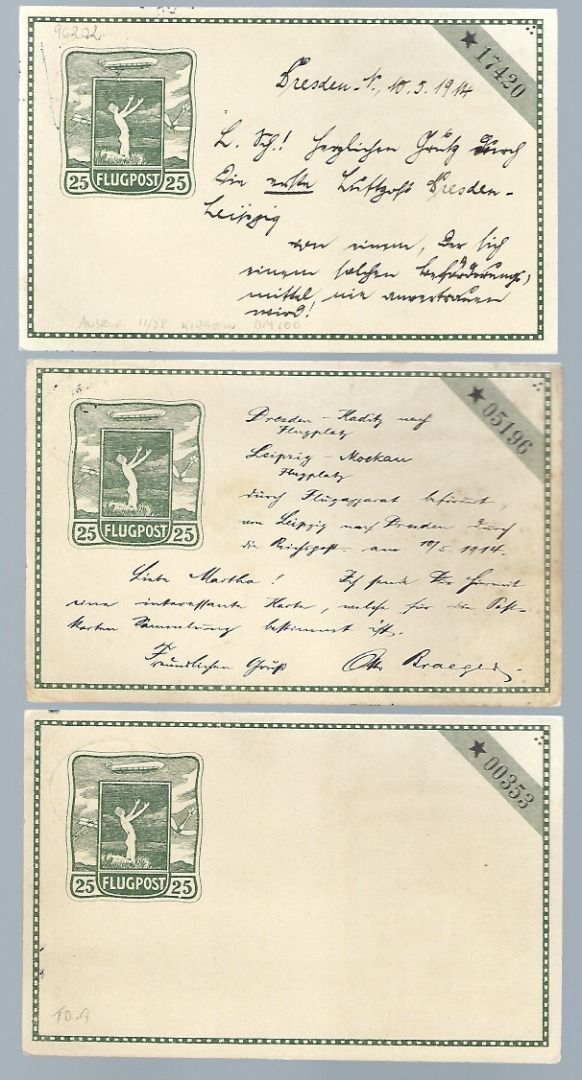 96272
★ 17420
25 FLUGPOST 25
Dresden-N., 10.5.1914
L. Sch.! Herzlichen Gruß durch
die erste Luftpost Dresden-
Leipzig
von einem, der sich
einem solchen Beförderungs-
mittel nie anvertrauen
wird!
DM 100
★ 05196
25 FLUGPOST 25
Dresden - Kaditz nach
Flugplatz
Leipzig - Mockau
Flugplatz
durch Flugapparat befördert,
von Leipzig nach Dresden durch
die Reichspost am 10/5. 1914.
Liebe Martha! Ich sende Dir hiermit
eine interessante Karte, welche für die Post-
karten Sammlung bestimmt ist.
Freundlichen Gruß Otto
★ 00353
25 FLUGPOST 25